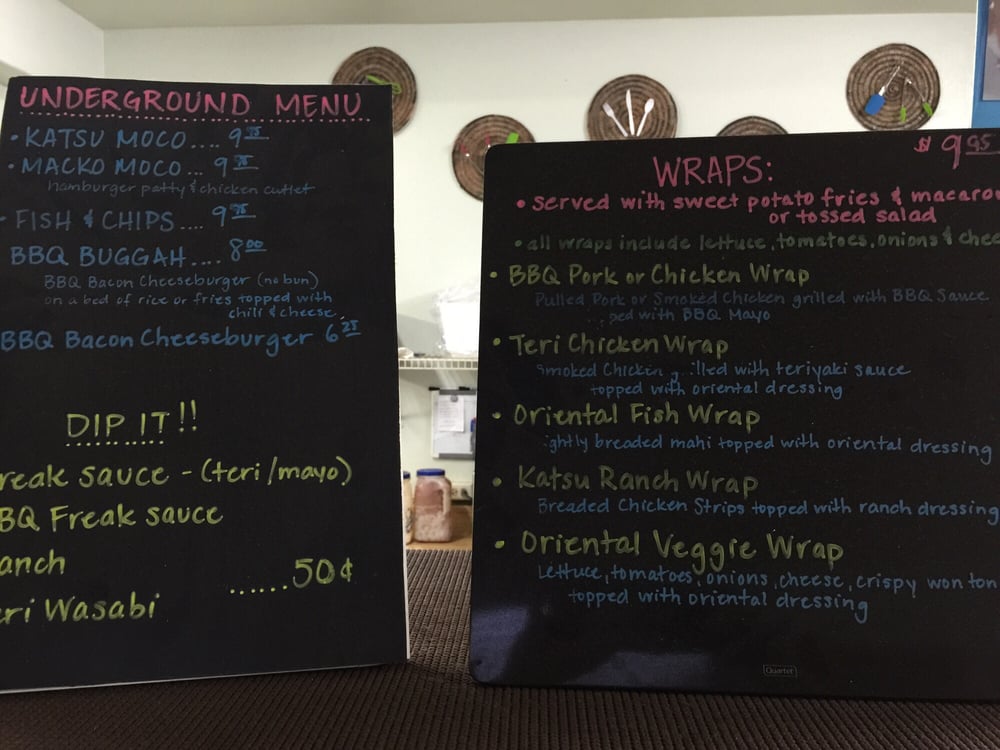 UNDERGROUND MENU
• KATSU MOCO.... 9 75
• MACKO MOCO... 9 75
hamburger patty & chicken cutlet
• FISH & CHIPS.... 9 75
BBQ BUGGAH.... 8 00
BBQ Bacon Cheeseburger (no bun)
on a bed of rice or fries topped with
chili & cheese.
BBQ Bacon Cheeseburger 6 25
DIP IT!!
reak sauce - (teri/mayo)
BQ Freak sauce
anch
......50¢
eri Wasabi
$9 95
WRAPS:
• served with sweet potato fries & macaro
or tossed salad
• all wraps include lettuce, tomatoes, onions & chee
• BBQ Pork or Chicken Wrap
Pulled Pork or Smoked Chicken grilled with BBQ Sauce
ped with BBQ Mayo
• Teri Chicken Wrap
Smoked Chicken g illed with teriyaki sauce
topped with oriental dressing
• Oriental Fish Wrap
ightly breaded mahi topped with oriental dressing
• Katsu Ranch Wrap
Breaded Chicken Strips topped with ranch dressing
• Oriental Veggie Wrap
Lettuce, tomatoes, onions, cheese, crispy won ton
topped with oriental dressing
Quartet